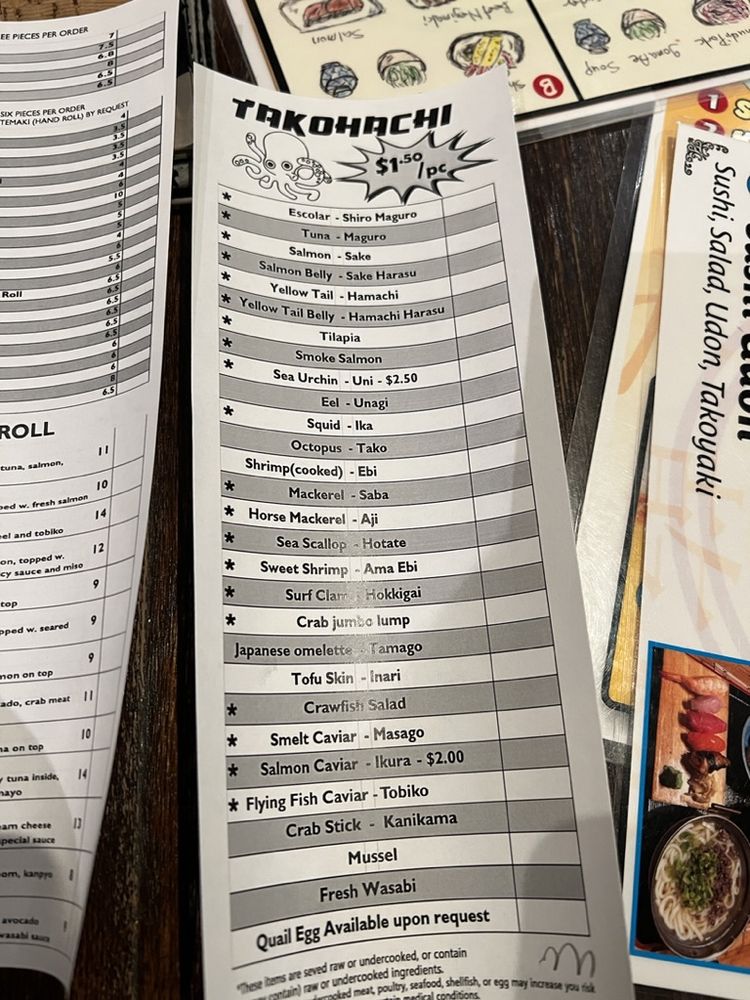 TAKOHACHI
$1.50/pc
* Escolar - Shiro Maguro
* Tuna - Maguro
* Salmon - Sake
* Salmon Belly - Sake Harasu
* Yellow Tail - Hamachi
* Yellow Tail Belly - Hamachi Harasu
* Tilapia
* Smoke Salmon
* Sea Urchin - Uni - $2.50
Eel - Unagi
* Squid - Ika
Octopus - Tako
Shrimp(cooked) - Ebi
* Mackerel - Saba
* Horse Mackerel - Aji
* Sea Scallop - Hotate
* Sweet Shrimp - Ama Ebi
* Surf Clam - Hokkigai
* Crab jumbo lump
Japanese omelette - Tamago
Tofu Skin - Inari
* Crawfish Salad
* Smelt Caviar - Masago
* Salmon Caviar - Ikura - $2.00
* Flying Fish Caviar - Tobiko
Crab Stick - Kanikama
Mussel
Fresh Wasabi
Quail Egg Available upon request
*These items are seved raw or undercooked, or contain
contain) raw or undercooked ingredients.
undercooked meat, poultry, seafood, shellfish, or egg may increase you risk
medical conditions.
EE PIECES PER ORDER
7
7.5
6.8
8
6.5
6.5
SIX PIECES PER ORDER
TEMAKI (HAND ROLL) BY REQUEST
4
3.5
3.5
3.5
3.5
4
4
6
10
5
5
5
4
6
5.5
6
6.5
Roll 6.5
6.5
6.5
6.5
6
6
6
8
6.5
ROLL
tuna, salmon, 11
ped w. fresh salmon 10
eel and tobiko 14
on, topped w. 12
cy sauce and miso
top 9
pped w. seared 9
mon on top 9
ado, crab meat 11
na on top 10
y tuna inside, 14
mayo
am cheese 13
pecial sauce
om, kanpyo 8
avocado
wasabi sauce
Salmon
Beef Negimaki
Soup
8
1
Sushi, Salad, Udon, Takoyaki